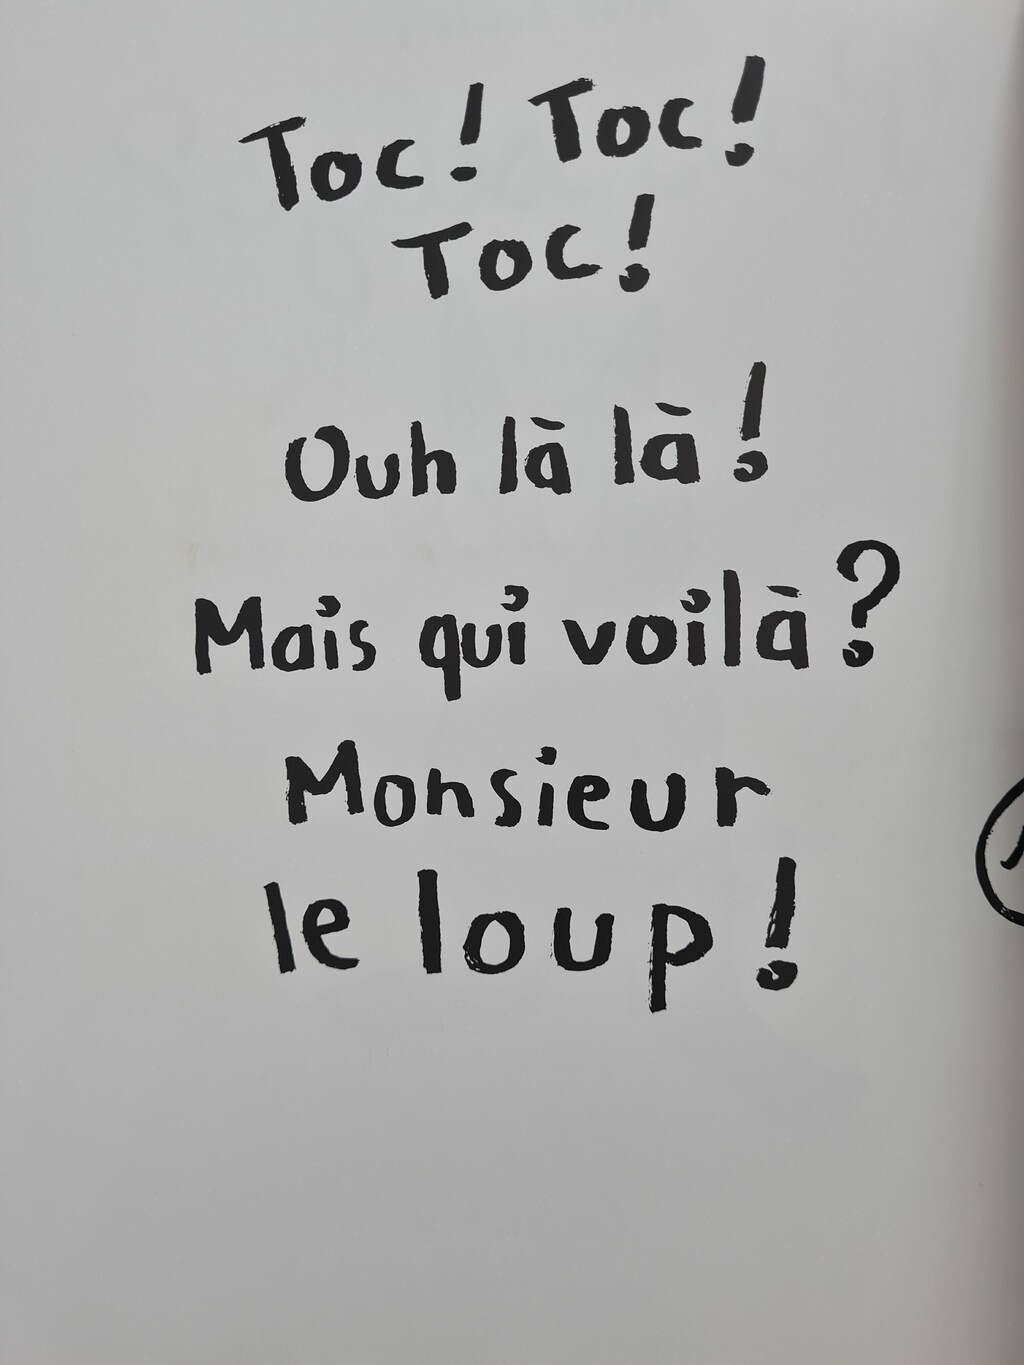 Toc! Toc!
Toc!
Ouh là là!
Mais qui voilà?
Monsieur
le loup!